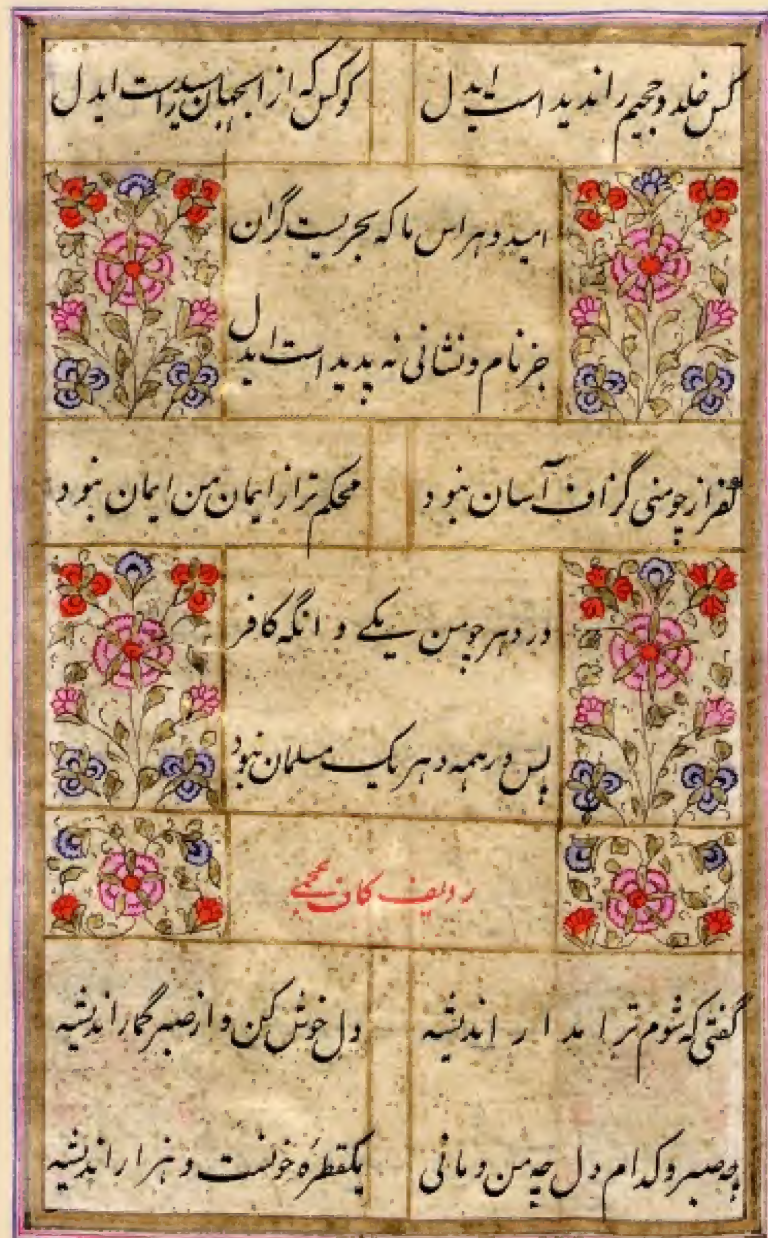 کس خلد و جحیم را ندیدست ایدل
کو کس که از آنجهان رسیدست ایدل
امید و هراس ما که بحریست گران
جز نام و نشانی نه پدید است ایدل
کفر از چو منی گزاف آسان نبود
محکم تر از ایمان من ایمان نبود
در دهر چو من یکے و انگه کافر
پس در همه دهر یک مسلمان نبود
ردیف کاف عجمی
گفتی که شوم ترا مدار اندیشه
دل خوش کن و از صبر گمار اندیشه
چه صبر و کدام دل چه من و مانی
یکقطره خونست و هزار اندیشه